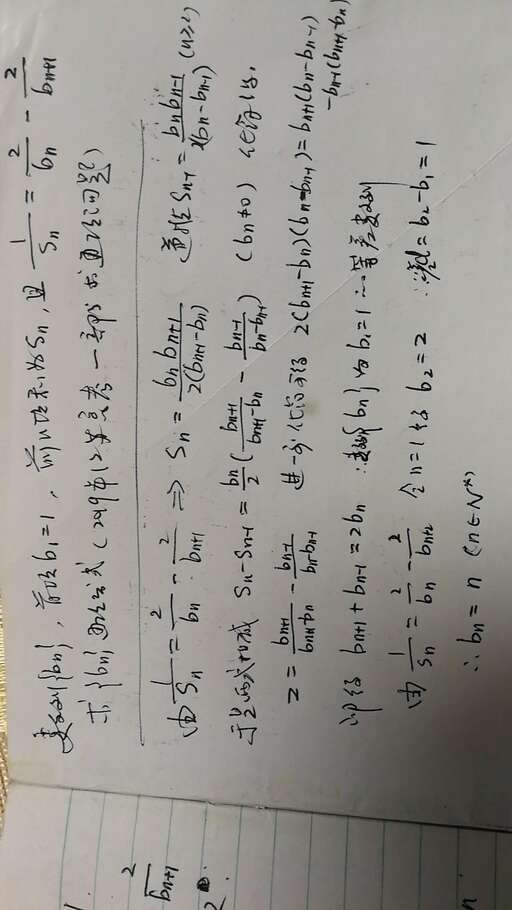 数列{bn}, 首项b₁=1, 前n项和为Sn, 且 1/Sn = 2/bn - 2/bn+1
求{bn}通项公式(2019年江苏高考一部分求通项问题)
由 1/Sn = 2/bn - 2/bn+1 ⇒ Sn = bnbn+1/2(bn+1-bn) 递推Sn-1 = bnbn-1/2(bn-bn-1) (n≥2)
于是两式相减 Sn-Sn-1 = bn/2 (bn+1/bn+1-bn - bn-1/bn-bn-1) (bn≠0) 化简得.
2 = bn+1/bn+1-bn - bn-1/bn-bn-1 进一步化简可得 2(bn+1-bn)(bn-bn-1) = bn+1(bn-bn-1)
-bn-1(bn+1-bn)
即得 bn+1+bn-1=2bn ∴数列{bn}为b₁=1的等差数列
由 1/Sn = 2/bn - 2/bn+1 令n=1得 b₂=2 ∴公差d=b₂-b₁=1
∴ bn=n (n∈N*)
2/bn+1
2
n